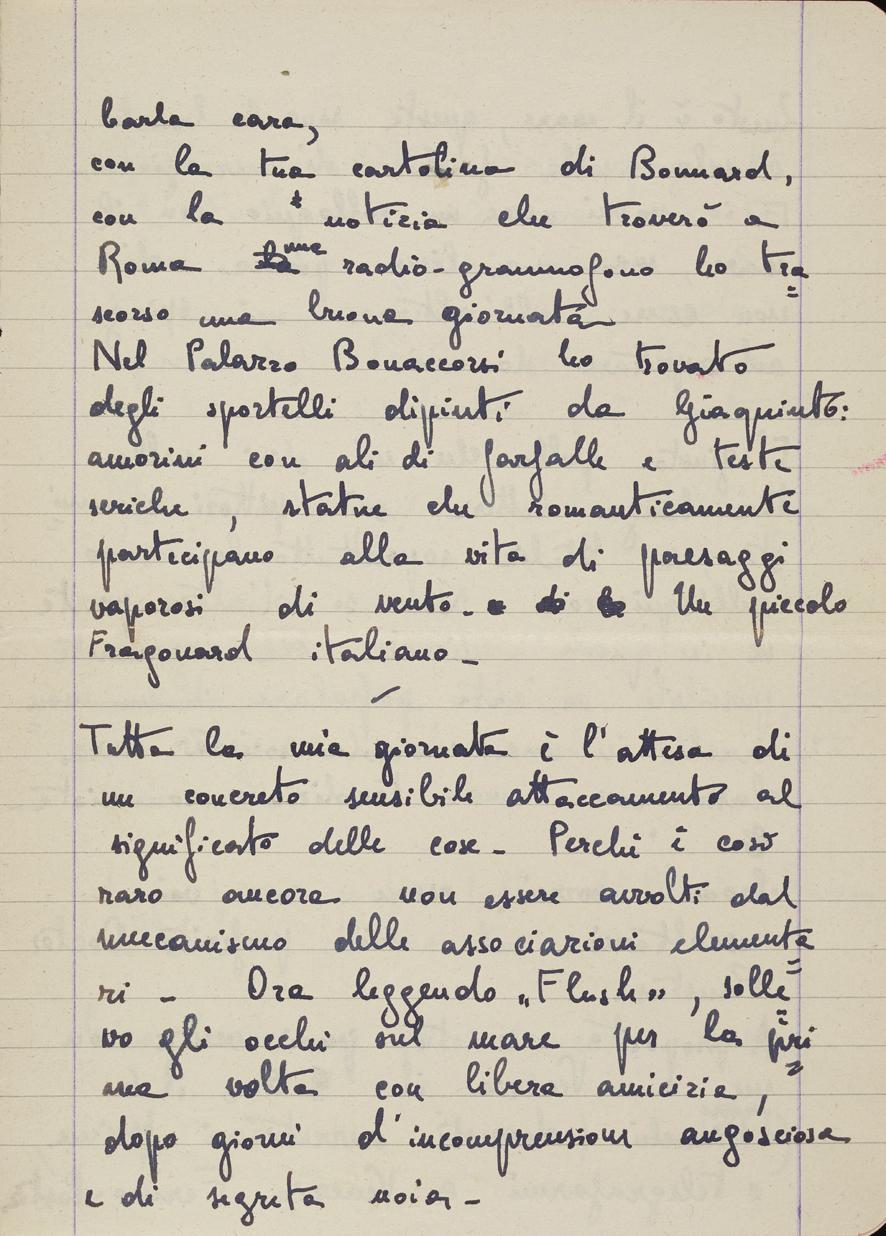 Carla cara,
con la tua cartolina di Bonnard,
con la notizia che troverò a
Roma una radio-grammofono ho tra
scorso una buona giornata
Nel Palazzo Bonaccorsi ho trovato
degli sportelli dipinti da Giaquinto:
amorini con ali di farfalle e teste
seriche, statue che romanticamente
participano alla vita di paesaggi
vaporosi di vento. Un piccolo
Fragonard italiano_
Tutta la mia giornata è l'attesa di
un concreto sensibile attaccamento al
significato delle cose_ Perché è così
raro ancora non essere avvolti dal
meccanismo delle associazioni elementa
ri_ Ora leggendo „Flush”, solle
vo gli occhi sul mare per la pri
ma volta con libera amicizia,
dopo giorni d'incomprensione angosciosa
e di segreta noia_